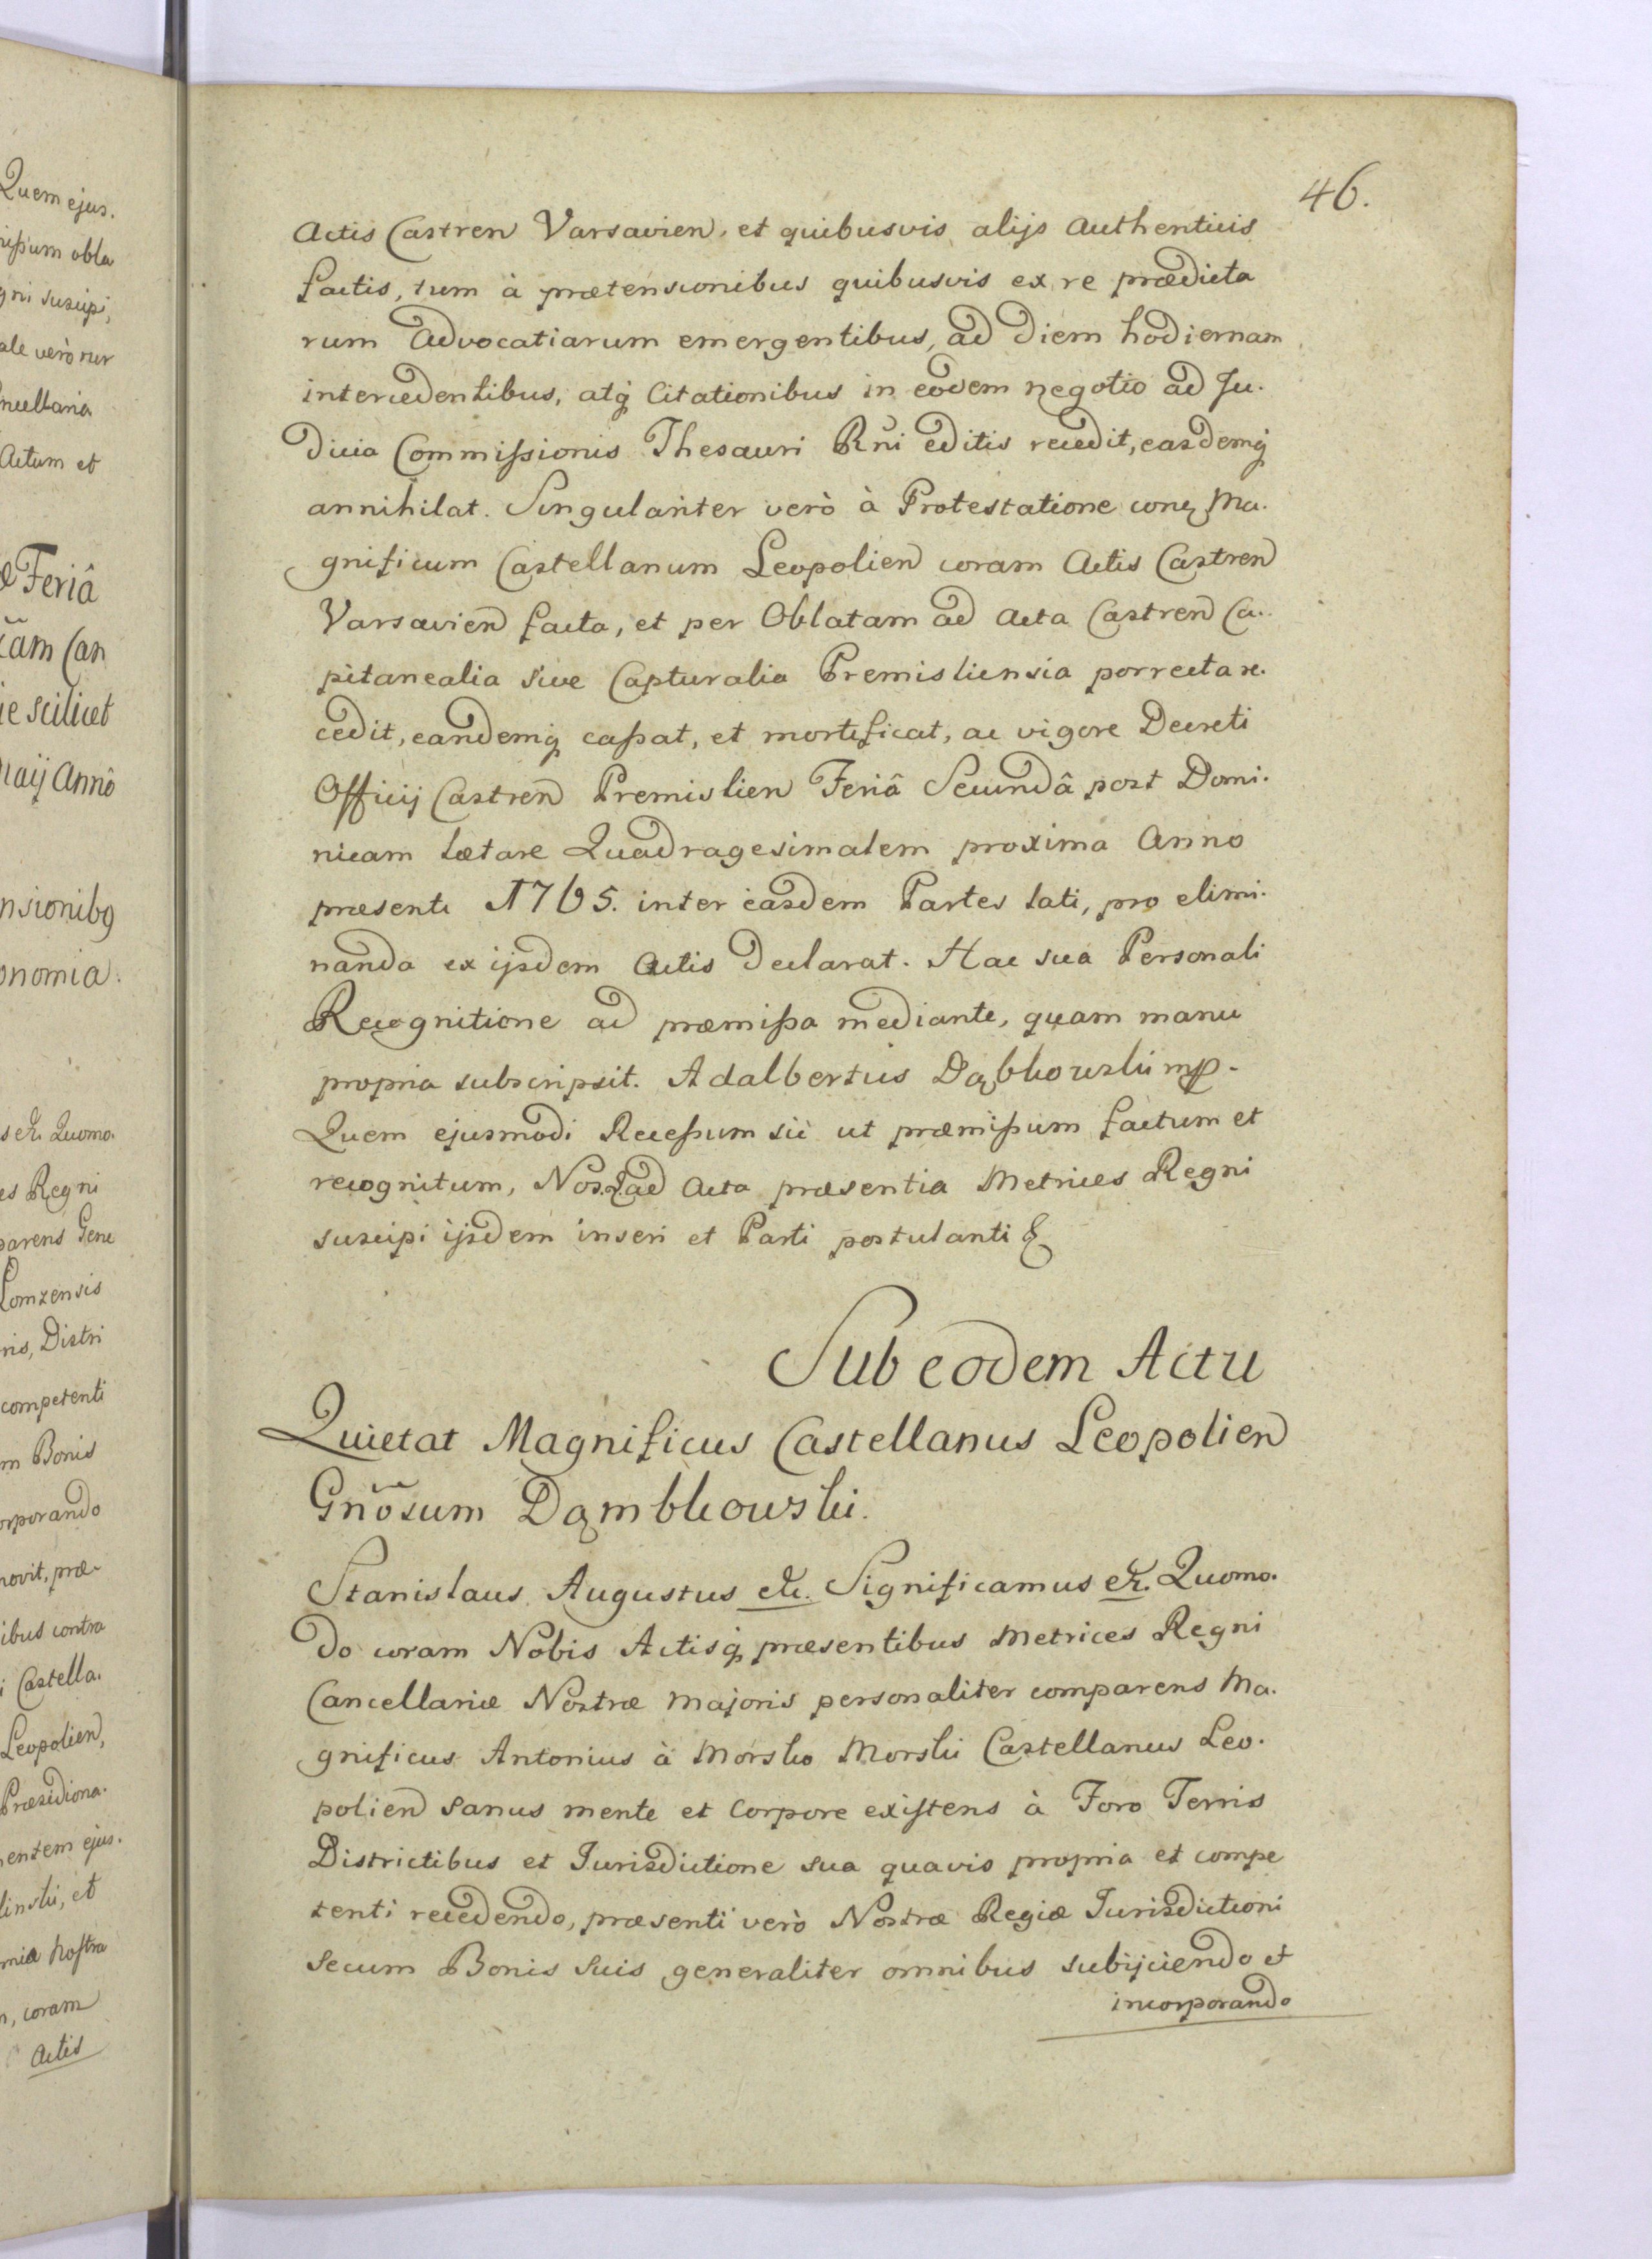 46.
Actis Castren Varsavien, et quibusvis alijs Authenticis
factis, tum à prætensionibus quibusvis ex re prædicta
rum Advocatiarum emergentibus, ad diem hodiernam
intercedentibus, atq Citationibus in eodem negotio ad Ju.
dicia Commißionis Thesauri Rñi editis recedit, easdemq
annihilat. Singulariter verò à Protestatione con Ma.
gnificum Castellanum Leopolien coram Actis Castren
Varsavien facta, et per Oblatam ad Acta Castren Ca.
pitanealia sive Capturalia Premisliensia porrecta re.
cedit, eandemq caßat, et mortificat, ac vigore Decreti
Officij Castren Premislien Feriâ Secundâ post Domi.
nicam Lætare Quadragesimalem proxima Anno
præsenti 1765. inter easdem Partes lati, pro elimi.
nanda ex ijsdem Actis declarat. Hac sua Personali
Recognitione ad præmißa mediante, quam manu
propria subscripsit. Adalbertus Dąbkowski mp.
Quem ejusmodi Receßum sic ut præmißum factum et
recognitum, Nos ad Acta præsentia Metrices Regni
suscipi ijsdem inseri et Parti postulanti &
Sub eodem Actu
Quietat Magnificus Castellanus Leopolien
Gnõsum Dąmbkowski.
Stanislaus Augustus etc. Significamus etc. Quomo.
do coram Nobis Actisq præsentibus Metrices Regni
Cancellariæ Nostræ Majoris personaliter comparens Ma.
gnificus Antonius à Morsko Morski Castellanus Leo.
polien sanus mente et Corpore existens à Foro Terris
Districtibus et Jurisdictione sua quavis propria et compe
tenti recedendo, præsenti verò Nostræ Regiæ Jurisdictioni
secum Bonis suis generaliter omnibus subijciendo et
incorporando